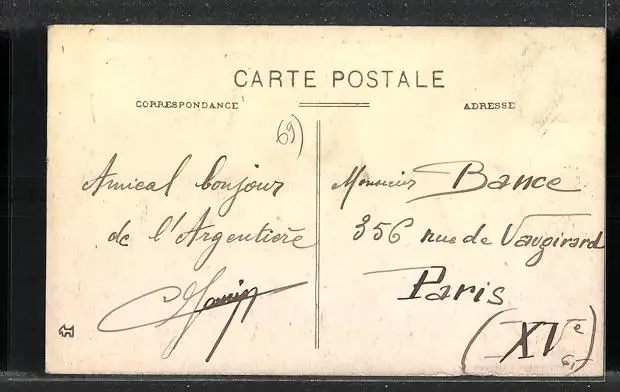 CARTE POSTALE
CORRESPONDANCE
ADRESSE
69)
Amical bonjour
de l'Argentière
Monsieur Bance
356 rue de Vaugirard
Paris
(XVe